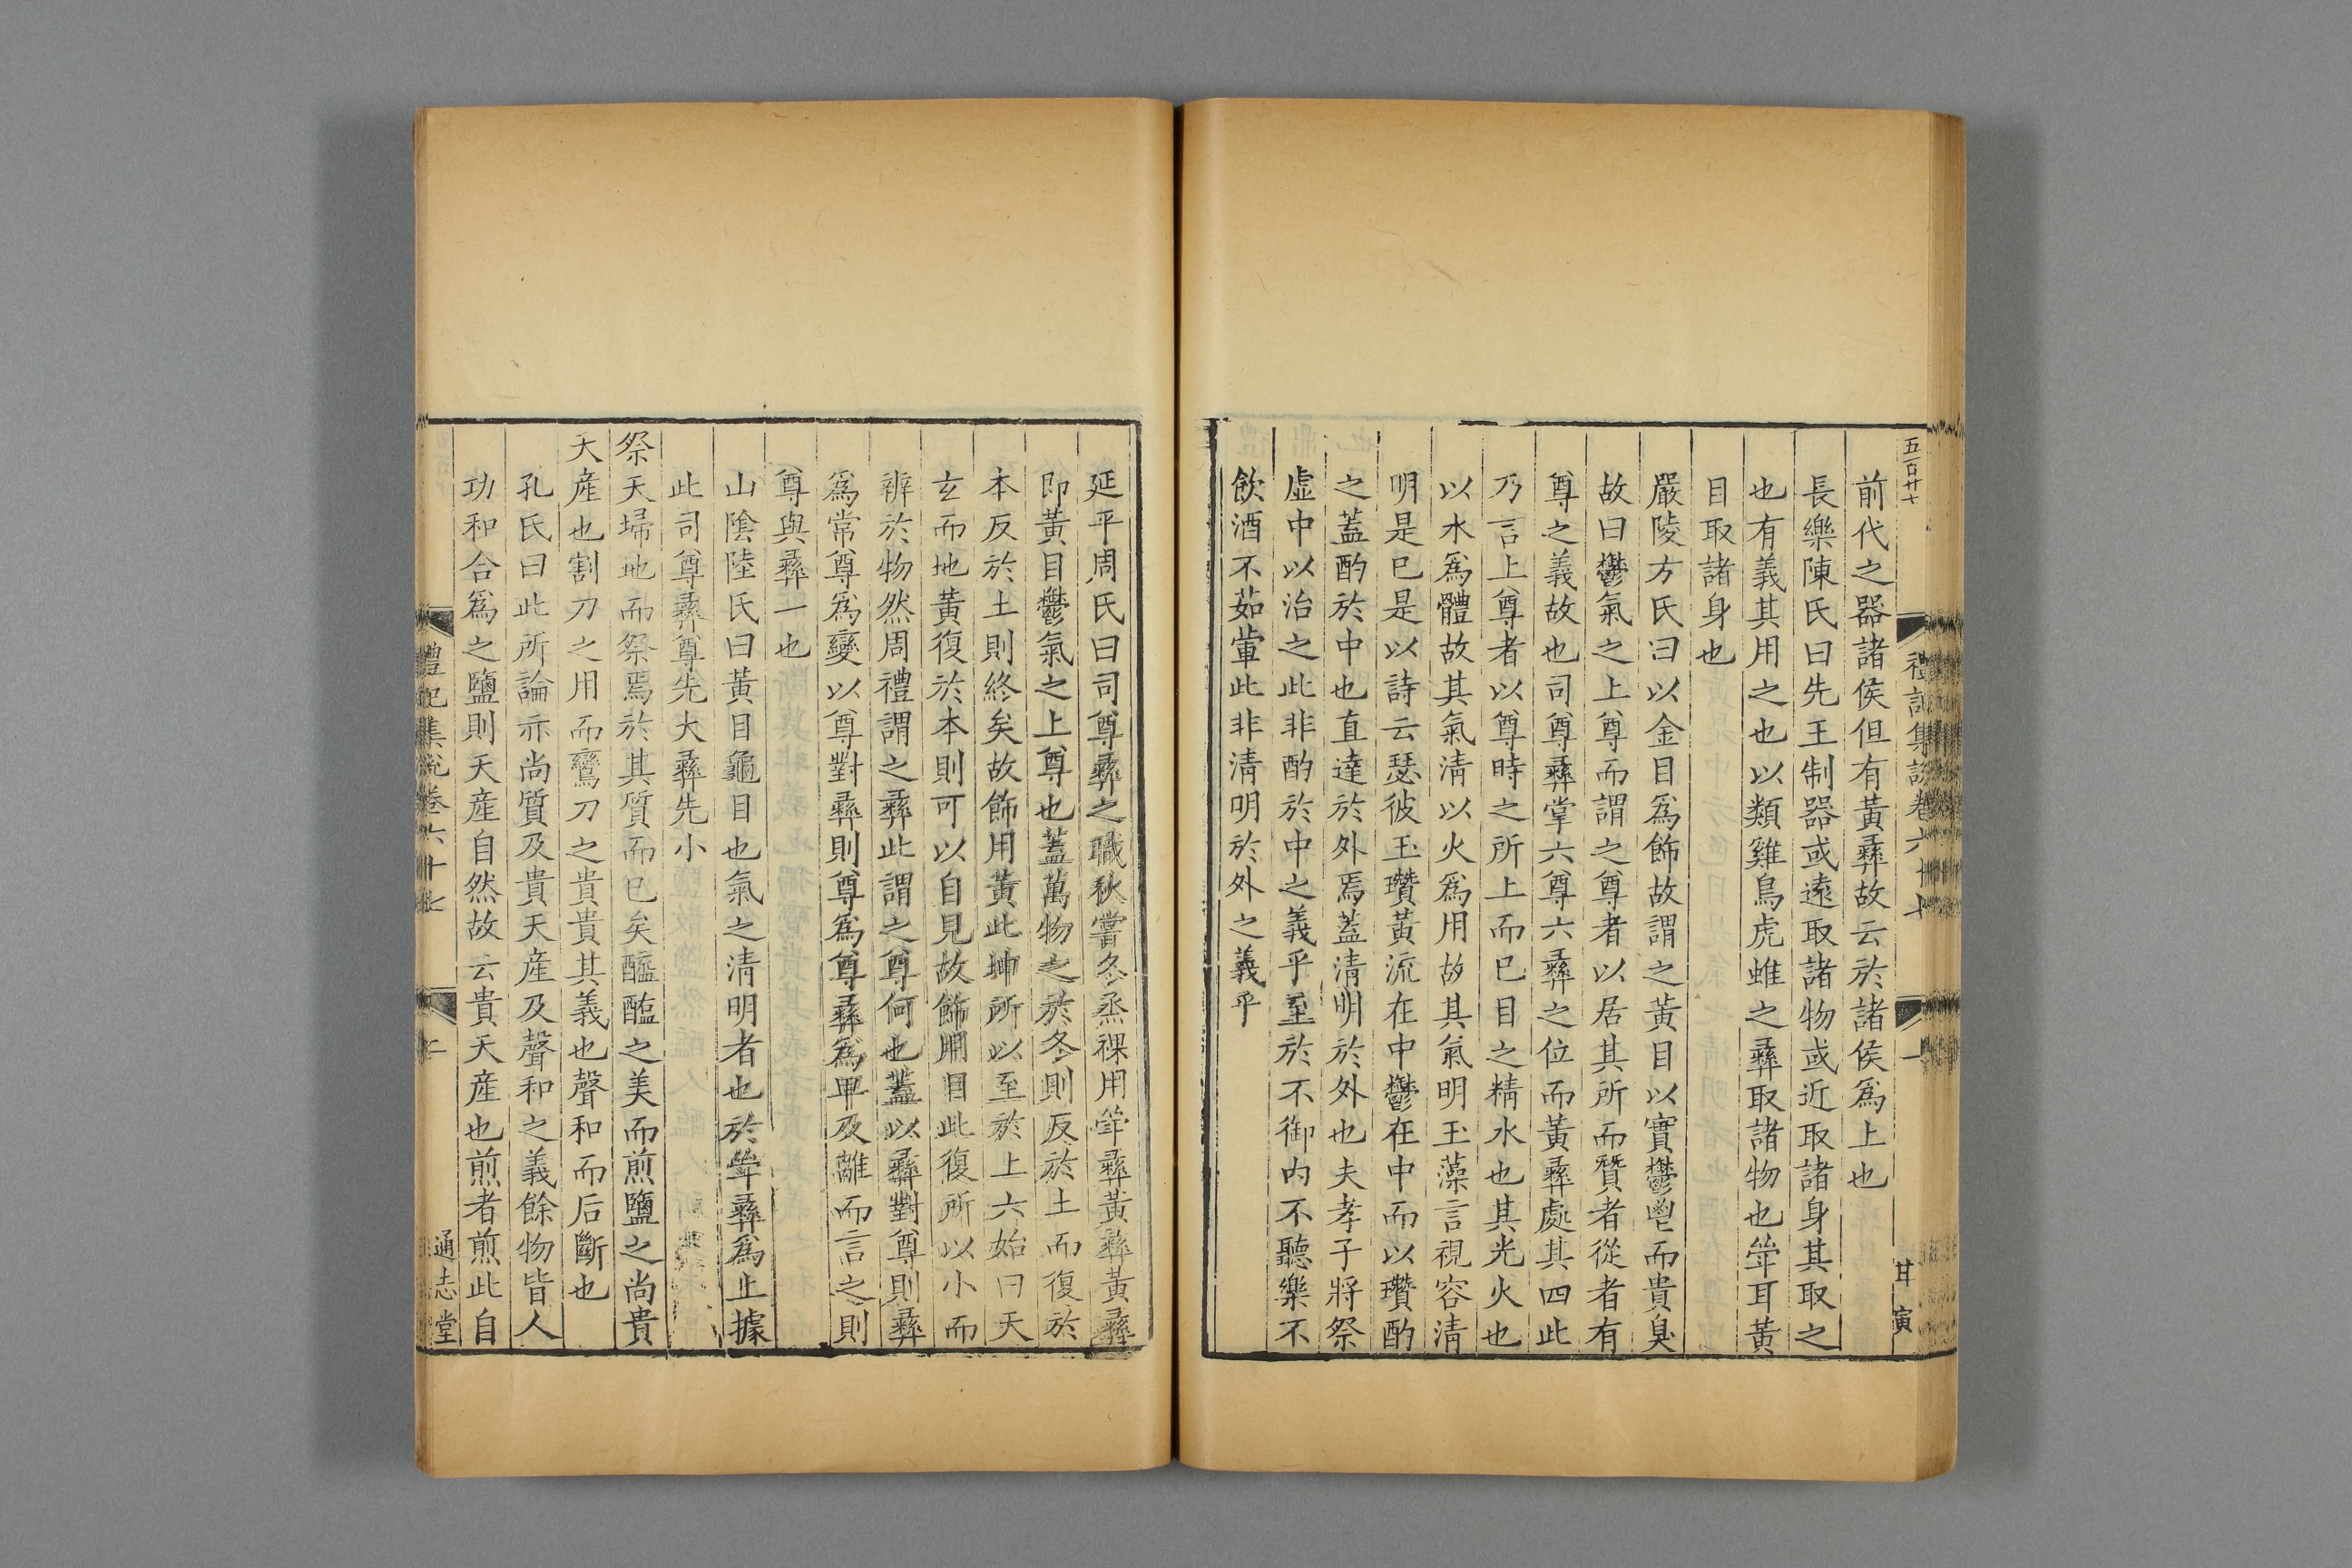 五百廿七
禮記集說卷六十七
一
甘寅
前代之器諸侯但有黃彝故云於諸侯爲上也
長樂陳氏曰先王制器或遠取諸物或近取諸身其取之
也有義其用之也以類雞鳥虎蜼之彝取諸物也斝耳黃
目取諸身也
嚴陵方氏曰以金目爲飾故謂之黃目以實鬱鬯而貴臭
故曰鬱氣之上尊而謂之尊者以居其所而贊者從者有
尊之義故也司尊彝掌六尊六彝之位而黃彝處其四此
乃言上尊者以尊時之所上而已目之精水也其光火也
以水爲體故其氣清以火爲用故其氣明玉藻言視容清
明是已是以詩云瑟彼玉瓚黃流在中鬱在中而以瓚酌
之蓋酌於中也直達於外焉蓋清明於外也夫孝子將祭
虛中以治之此非酌於中之義乎至於不御內不聽樂不
飲酒不茹葷此非清明於外之義乎
延平周氏曰司尊彝之職秋嘗冬烝祼用斝彝黃彝黃彝
即黃目鬱氣之上尊也蓋萬物之於冬則反於土而復於
本反於土則終矣故飾用黃此坤所以至於上六始曰天
玄而地黃復於本則可以自見故飾用目此復所以小而
辨於物然周禮謂之彝此謂之尊何也蓋以彝對尊則彝
爲常尊爲變以尊對彝則尊爲尊彝爲卑及離而言之則
尊與彝一也
山陰陸氏曰黃目龜目也氣之清明者也於斝彝爲止據
此司尊彝尊先大彝先小
祭天埽地而祭焉於其質而已矣醯醢之美而煎鹽之尚貴
天產也割刀之用而鸞刀之貴貴其義也聲和而后斷也
孔氏曰此所論亦尚質及貴天產及聲和之義餘物皆人
功和合爲之鹽則天產自然故云貴天產也煎者煎此自
禮記集說卷六十七
二
通志堂